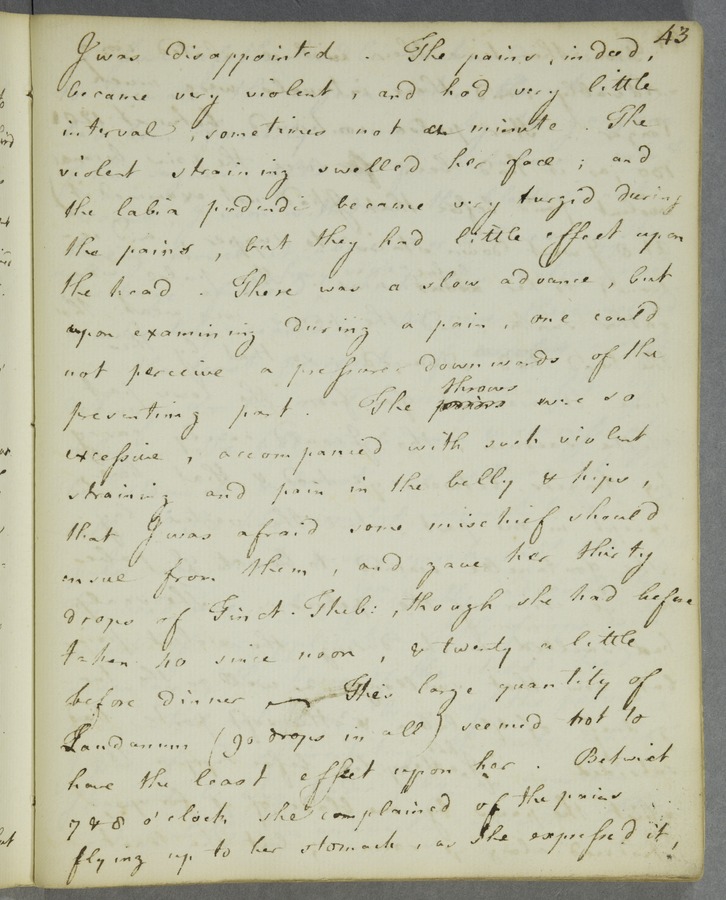 43
I was disappointed. The pains, indeed,
became very violent, and had very little
interval, sometimes not a minute. The
violent straining swelled her face; and
the labia pudendi became very turgid during
the pains, but they had little effect upon
the head. There was a slow advance, but
upon examining during a pain, one could
not perceive a pressure downwards of the
throws
presenting part. The pains were so
excessive, accompanied with such violent
straining and pain in the belly & hips,
that I was afraid some mischief should
ensue from them, and gave her thirty
drops of Tinct. Theb:, though she had before
taken 40 since noon, & twenty a little
before dinner — This large quantity of
Laudanum (90 drops in all) seemed not to
have the least effect upon her. Betwixt
7 & 8 o'clock she complained of the pains
flying up to her stomach, as she expressed it,